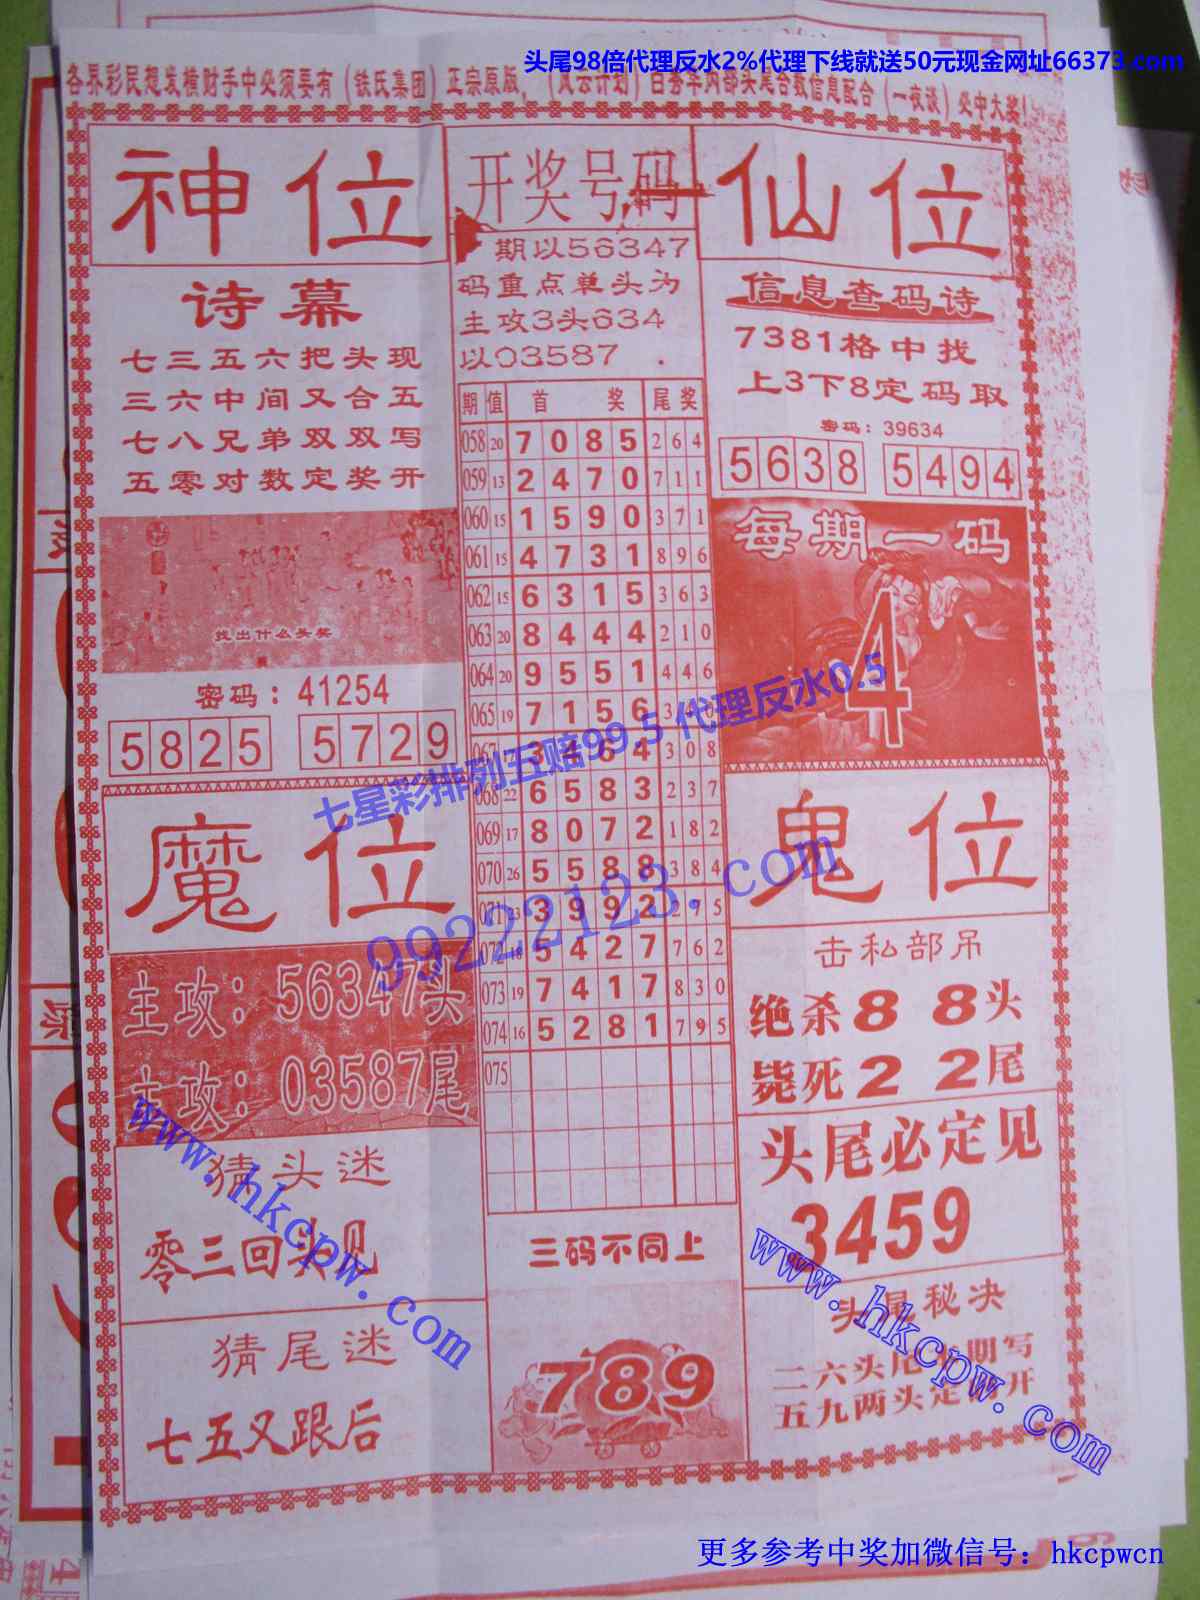 头尾98倍代理反水2%代理下线就送50元现金网址66373.com
各界彩民想发横财手中必须要有（铁氏集团）正宗原版，（风云计划）白券年内部头尾合数信息配合（一夜谈）必中大奖！
神位
诗幕
七三五六把头现
三六中间又合五
七八兄弟双双写
五零对数定奖开
找出什么头奖
密码：41254
5825 5729
开奖号码
期以56347
码重点单头为
主攻3头634
以03587
期 值 首奖 尾奖
058 20 7 0 8 5 2 6 4
059 13 2 4 7 0 7 1 1
060 15 1 5 9 0 3 7 1
061 15 4 7 3 1 8 9 6
062 15 6 3 1 5 3 6 3
063 20 8 4 4 4 2 1 0
064 20 9 5 5 1 4 4 6
065 19 7 1 5 6 3
067 3 4 6 4 3 0 8
068 22 6 5 8 3 2 3 7
069 17 8 0 7 2 1 8 2
070 26 5 5 8 8 3 8 4
071 23 3 9 9 2 2 7 5
072 18 5 4 2 7 7 6 2
073 19 7 4 1 7 8 3 0
074 16 5 2 8 1 7 9 5
075
三码不同上
789
仙位
信息查码诗
7381格中找
上3下8定码取
密码：39634
5638 5494
每期一码
4
七星彩排列五赔99.5 代理反水0.5
99222123.com
魔位
主攻：56347头
主攻：03587尾
猜头迷
零三回头见
猜尾迷
七五又跟后
鬼位
击私部吊
绝杀8 8头
毙死2 2尾
头尾必定见
3459
头尾秘决
二六头尾 期写
五九两头定 开
www.hkcpw.com
www.hkcpw.com
更多参考中奖加微信号：hkcpwcn